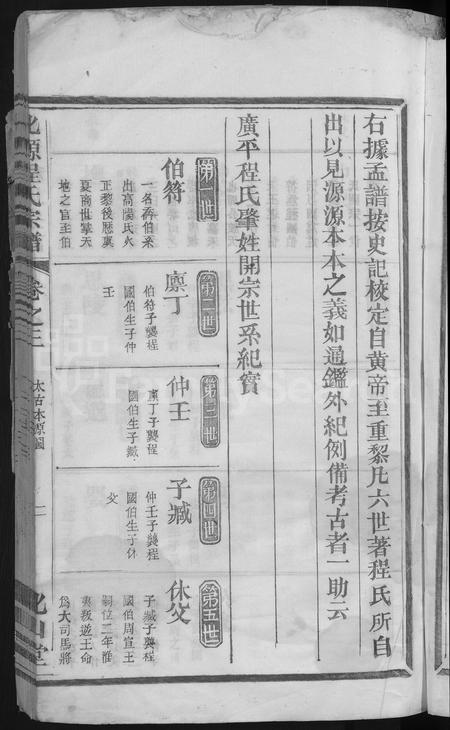 右據孟譜按史記校定自黄帝至重黎凡六世著程氏所自
出以見源源本本之義如通鑑外紀例備考古者一助云
廣平程氏肇姓開宗世系紀實
第一世
伯符
一名喬伯系
出高陽氏火
正黎後歷夏
夏商世掌天
地之官至伯
第二世
廪丁
伯符子襲程
國伯生子仲
壬
第三世
仲壬
廪丁子襲程
國伯生子臧
第四世
子臧
仲壬子襲程
國伯生子休
父
第五世
休父
子臧子襲程
國伯周宣王
嗣位二年淮
夷叛遊王命
爲大司馬將
源程氏宗譜
卷之三
太古本源圖
二